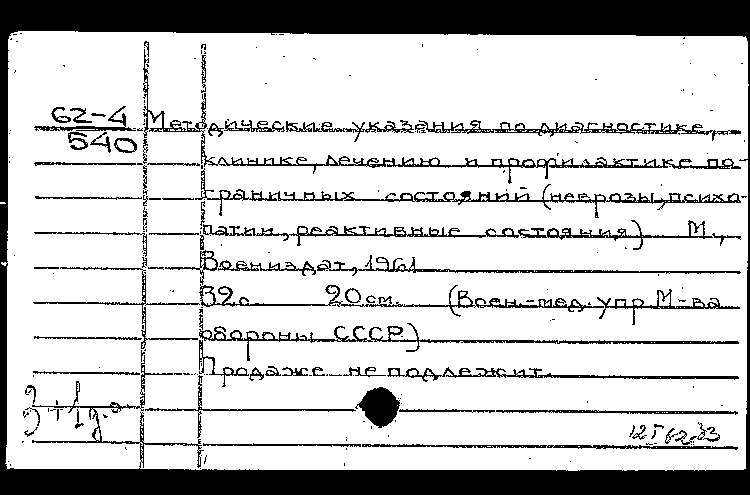 62-4
540
Методические указания по диагностике,
клинике, лечению и профилактике по-
граничных состояний (неврозы, психо-
патии, реактивные состояния) М.,
Воениздат, 1961
32с. 20 см. (Воен.-мед. упр. М-ва
обороны СССР)
Продаже не подлежит.
3+1 д.о.
12 I 62